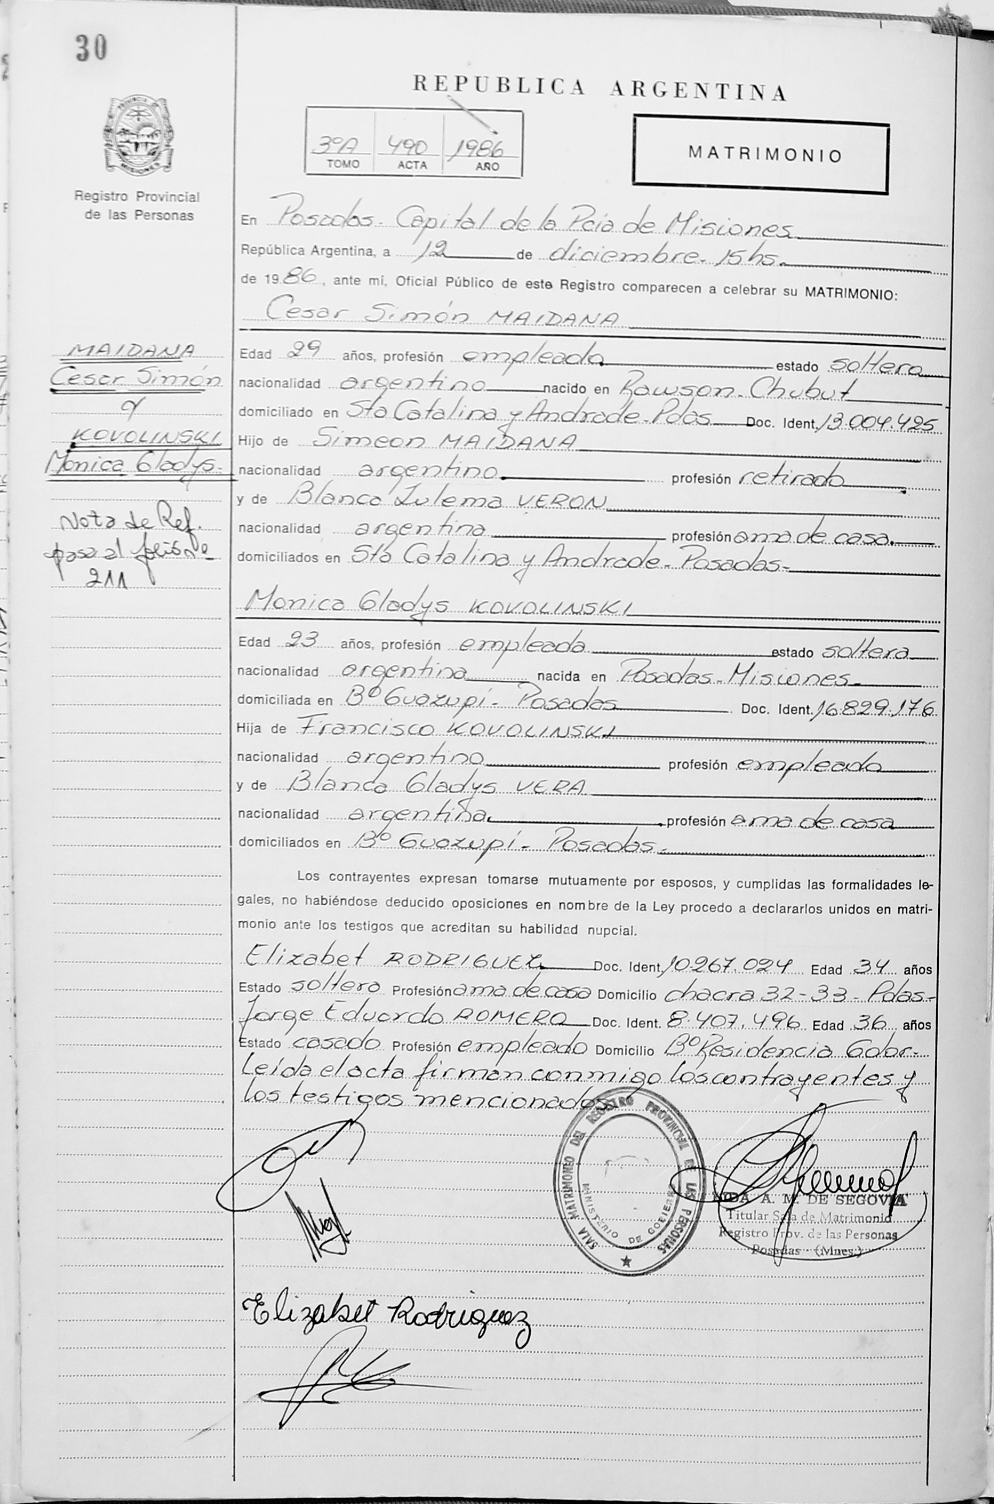 30
REPUBLICA ARGENTINA
3ºA 490 1986
TOMO ACTA AÑO
MATRIMONIO
Registro Provincial
de las Personas
En Posadas- Capital de la Pcia de Misiones
República Argentina, a 12 de diciembre- 15hs.
de 1986, ante mí, Oficial Público de este Registro comparecen a celebrar su MATRIMONIO:
Cesar Simón MAIDANA
MAIDANA
Cesar Simón
y
KOVOLINSKI
Monica Gladys-
Nota de Ref.
pasa al folio nº
211
Edad 29 años, profesión empleado estado soltero
nacionalidad argentino nacido en Rawson- Chubut
domiciliado en Sta Catalina y Andrade- Pdas Doc. Ident. 13.004.425
Hijo de Simeon MAIDANA
nacionalidad argentino profesión retirado
y de Blanca Zulema VERON
nacionalidad argentina profesión ama de casa.
domiciliados en Sta Catalina y Andrade- Posadas-
Monica Gladys KOVOLINSKI
Edad 23 años, profesión empleada estado soltera
nacionalidad argentina nacida en Posadas- Misiones-
domiciliada en Bº Guazupi- Posadas Doc. Ident. 16.829.176
Hija de Francisco KOVOLINSKI
nacionalidad argentino profesión empleado
y de Blanca Gladys VERA
nacionalidad argentina. profesión ama de casa
domiciliados en Bº Guazupi- Posadas-
Los contrayentes expresan tomarse mutuamente por esposos, y cumplidas las formalidades le-
gales, no habiéndose deducido oposiciones en nombre de la Ley procedo a declararlos unidos en matri-
monio ante los testigos que acreditan su habilidad nupcial.
Elizabet RODRIGUEZ Doc. Ident. 10.267.024 Edad 34 años
Estado soltera Profesión ama de casa Domicilio chacra 32-33- Pdas-
Jorge Eduardo ROMERO Doc. Ident. 8.407.496 Edad 36 años
Estado casado Profesión empleado Domicilio Bº Residencia Gdor-
Leída el acta firman conmigo los contrayentes y
los testigos mencionados
SALA MATRIMONEO DEL REGISTRO PROVINCIAL DE LAS PERSONAS
MINISTERIO DE GOBIERNO
A. M. DE SEGOVIA
Titular Sala de Matrimonio
Registro Prov. de las Personas
Posadas - (Mnes.)
Elizabet Rodriguez